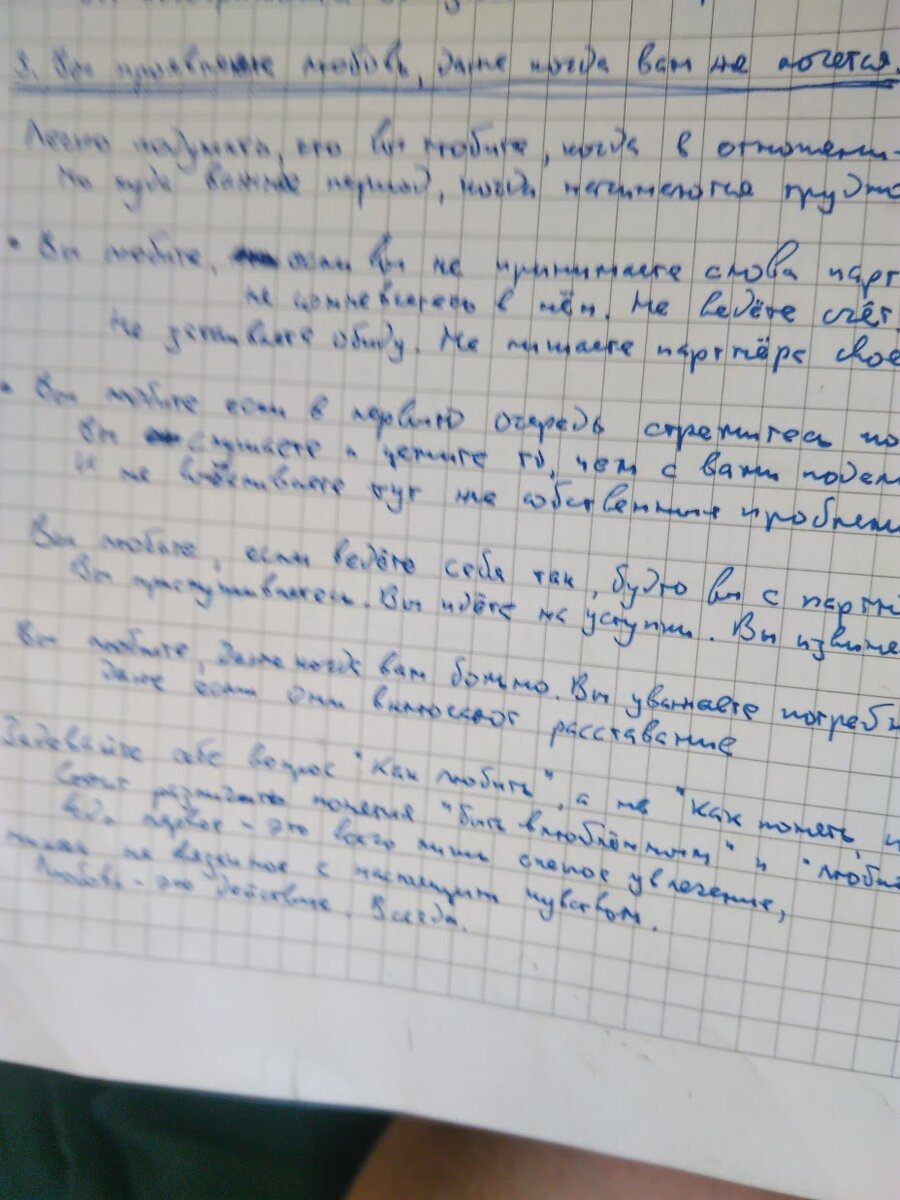 3. Вы проявляете любовь, даже когда вам не хочется.
Легко подумать, что вы любите, когда в отношени-
Но куда важнее период, когда начинаются трудно
• Вы любите, если вы не принимаете слова парт
не сомневаетесь в нём. Не ведёте счёт.
Не затаиваете обиду. Не лишаете партнёра свое
• Вы любите если в первую очередь стремитесь по
Вы слушаете и цените то, чем с вами подел
И не вываливаете тут же собственные проблем
Вы любите, если ведёте себя так, будто вы с партн
Вы прислушиваетесь. Вы идёте на уступки. Вы извиняе
Вы любите, даже когда вам больно. Вы уважаете потребн
даже если они включают расставание
Задавайте себе вопрос "Как любить", а не "Как понять,
Стоит различать понятия "быть влюблённым" и "люби
первое - это всего лишь слепое увлечение,
никак не связанное с настоящим чувством.
Любовь - это действие. Всегда.